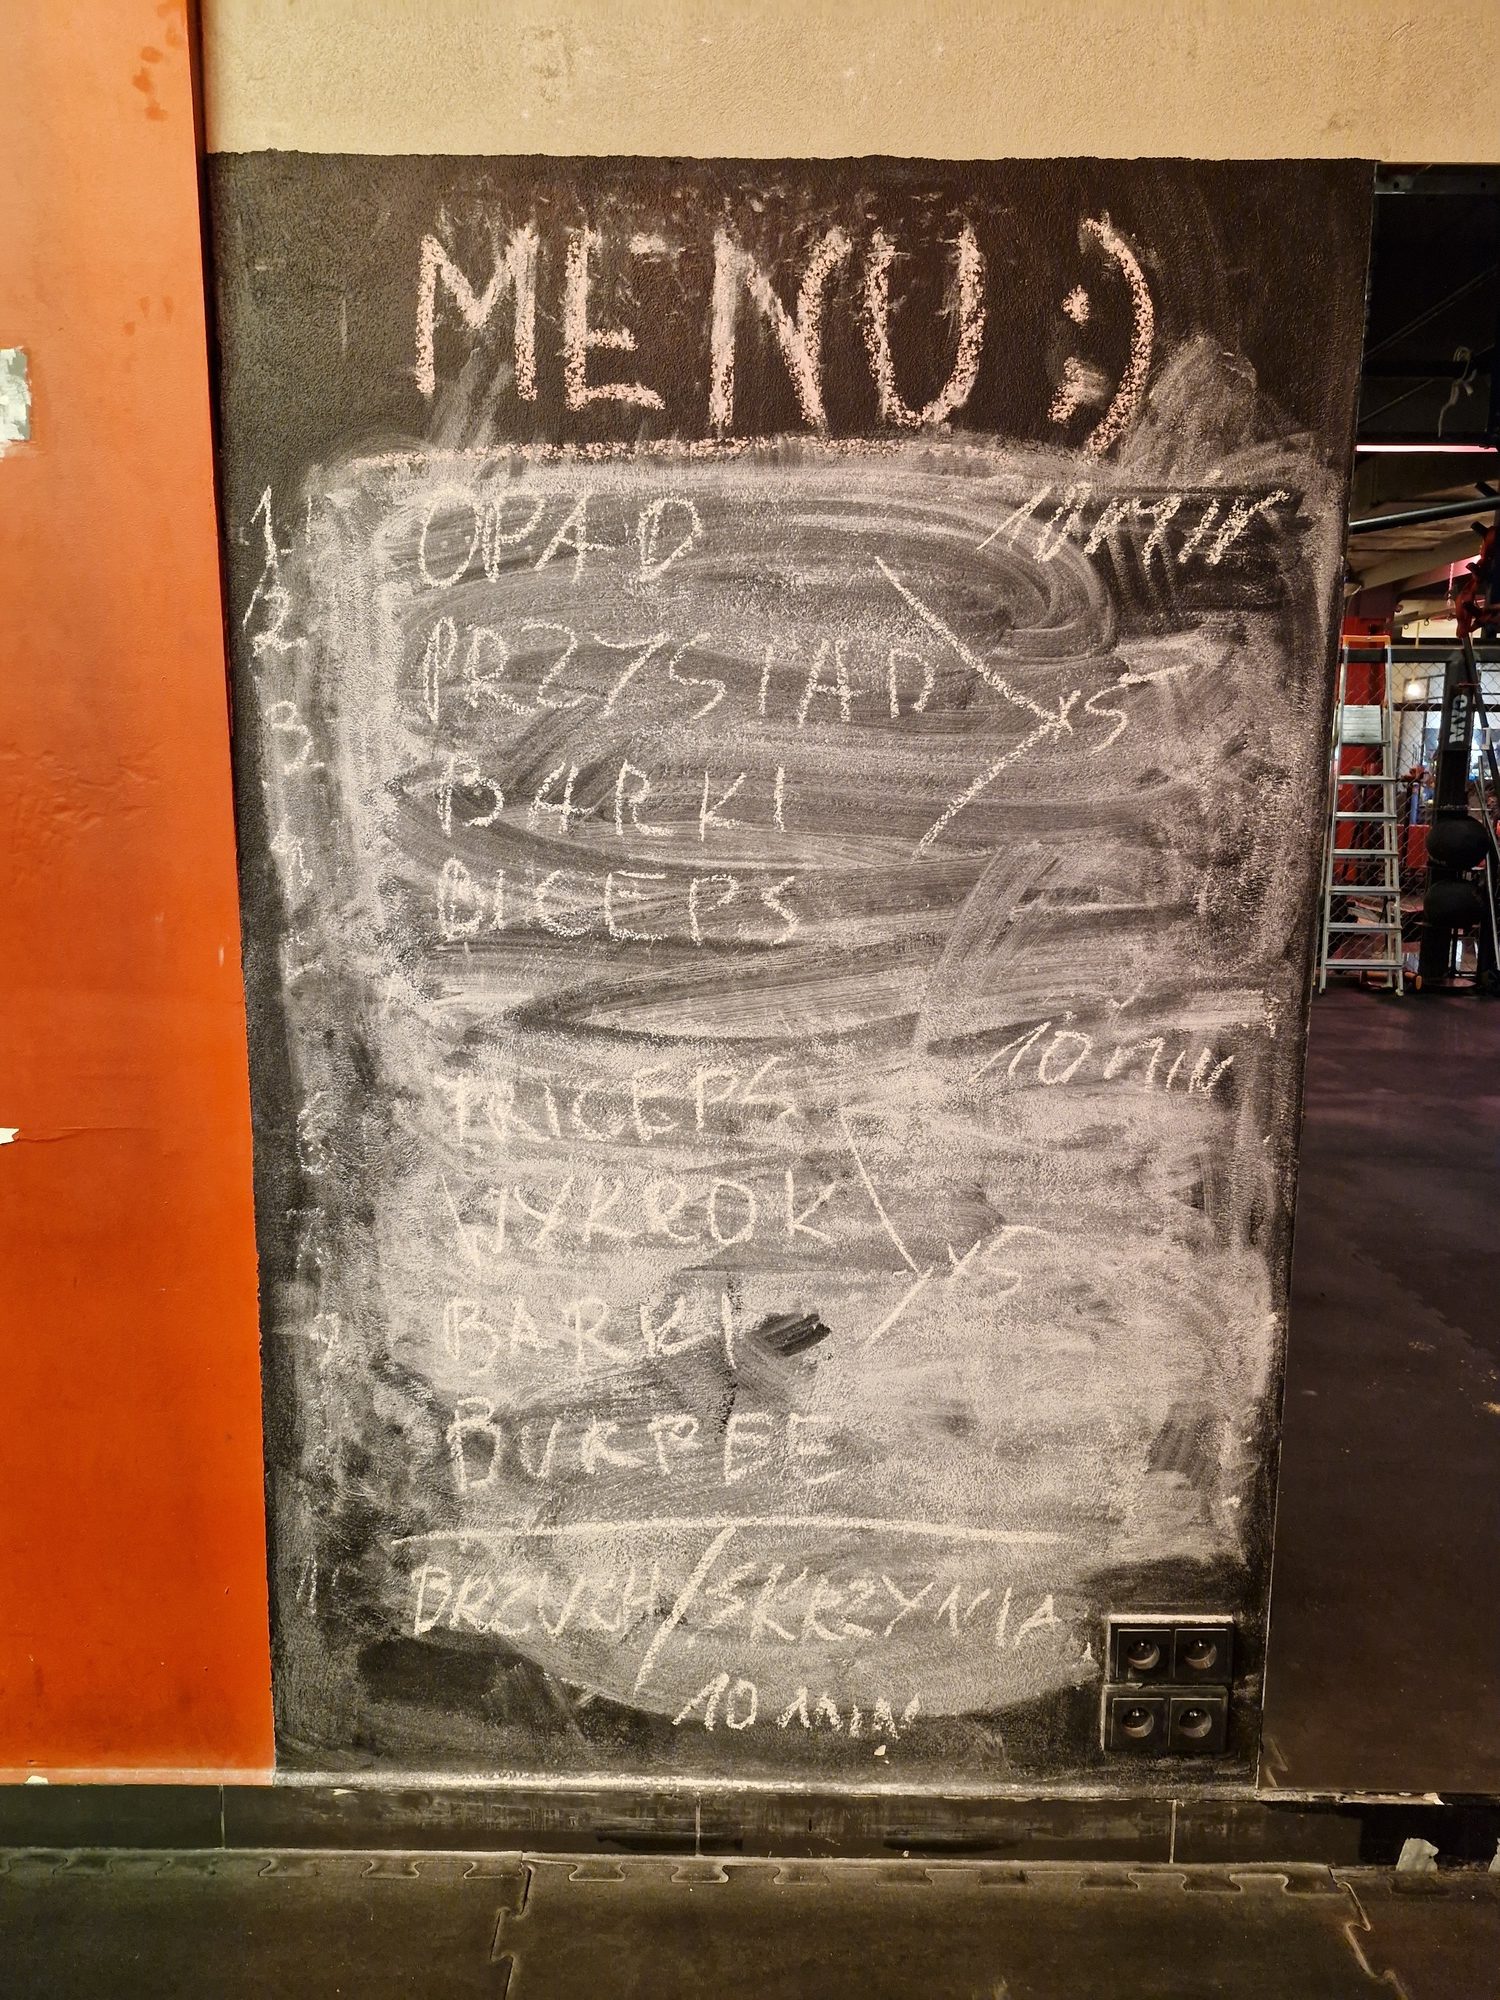 MENU :)
1. OPAD 10 MIN
2. PRZYSIAD
x5
3. BARKI
BICEPS
TRICEPS 10 MIN
6
WYKROK
x5
BARKI
BURPEE
BRZUCH/SKRZYNIA
10 MIN
MYO